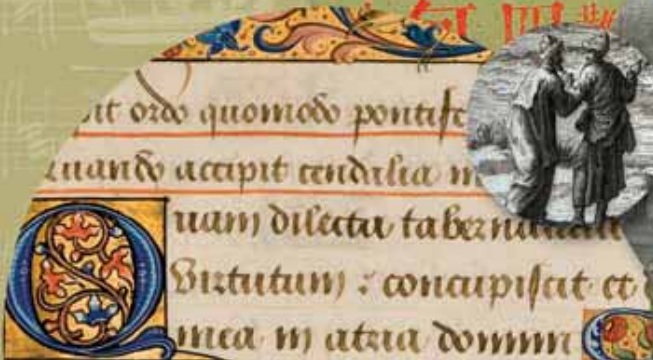 it ordo quomodo pontifc
uando accipit cendalia in
Quam dilecta tabernacula
Virtutum : concupiscit et
mea in atria domini